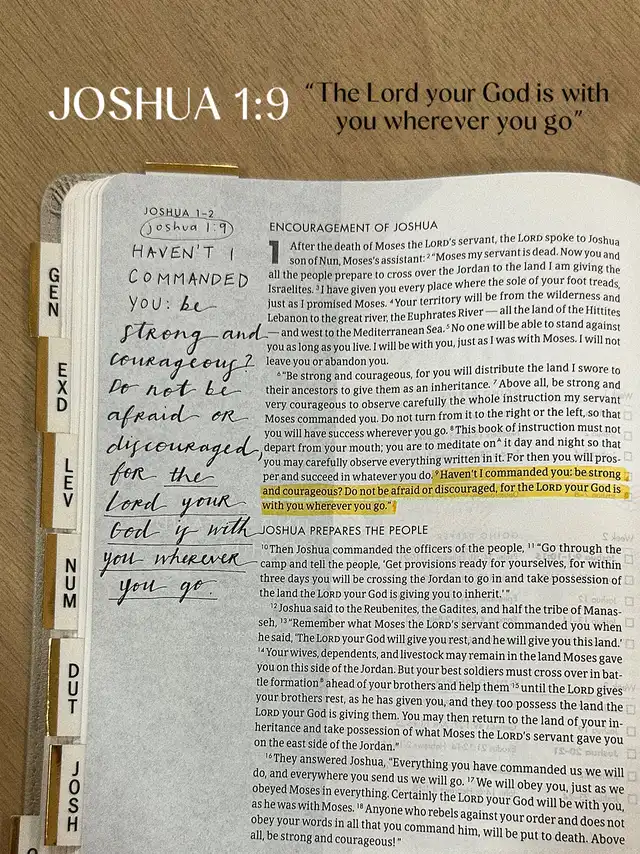 JOSHUA 1:9
"The Lord your God is with
you wherever you go"
JOSHUA 1-2
joshua 1:9
HAVEN'T I
COMMANDED
YOU: be
strong and
courageous?
Do not be
afraid or
discouraged,
for the
Lord your
God is with
you wherever
you go.
GEN
EXD
LEV
NUM
DUT
JOSH
ENCOURAGEMENT OF JOSHUA
1 After the death of Moses the LORD's servant, the LORD spoke to Joshua
son of Nun, Moses's assistant: 2 "Moses my servant is dead. Now you and
all the people prepare to cross over the Jordan to the land I am giving the
Israelites. 3 I have given you every place where the sole of your foot treads,
just as I promised Moses. 4 Your territory will be from the wilderness and
Lebanon to the great river, the Euphrates River — all the land of the Hittites
— and west to the Mediterranean Sea. 5 No one will be able to stand against
you as long as you live. I will be with you, just as I was with Moses. I will not
leave you or abandon you.
6 "Be strong and courageous, for you will distribute the land I swore to
their ancestors to give them as an inheritance. 7 Above all, be strong and
very courageous to observe carefully the whole instruction my servant
Moses commanded you. Do not turn from it to the right or the left, so that
you will have success wherever you go. 8 This book of instruction must not
depart from your mouth; you are to meditate on A it day and night so that
you may carefully observe everything written in it. For then you will pros-
per and succeed in whatever you do. 9 Haven't I commanded you: be strong
and courageous? Do not be afraid or discouraged, for the LORD your God is
with you wherever you go."
JOSHUA PREPARES THE PEOPLE
10 Then Joshua commanded the officers of the people, 11 "Go through the
camp and tell the people, 'Get provisions ready for yourselves, for within
three days you will be crossing the Jordan to go in and take possession of
the land the LORD your God is giving you to inherit.'"
12 Joshua said to the Reubenites, the Gadites, and half the tribe of Manas-
seh, 13 "Remember what Moses the LORD's servant commanded you when
he said, 'The LORD your God will give you rest, and he will give you this land.'
14 Your wives, dependents, and livestock may remain in the land Moses gave
you on this side of the Jordan. But your best soldiers must cross over in bat-
tle formation B ahead of your brothers and help them 15 until the LORD gives
your brothers rest, as he has given you, and they too possess the land the
LORD your God is giving them. You may then return to the land of your in-
heritance and take possession of what Moses the LORD's servant gave you
on the east side of the Jordan."
16 They answered Joshua, "Everything you have commanded us we will
do, and everywhere you send us we will go. 17 We will obey you, just as we
obeyed Moses in everything. Certainly the LORD your God will be with you,
as he was with Moses. 18 Anyone who rebels against your order and does not
obey your words in all that you command him, will be put to death. Above
all, be strong and courageous!"